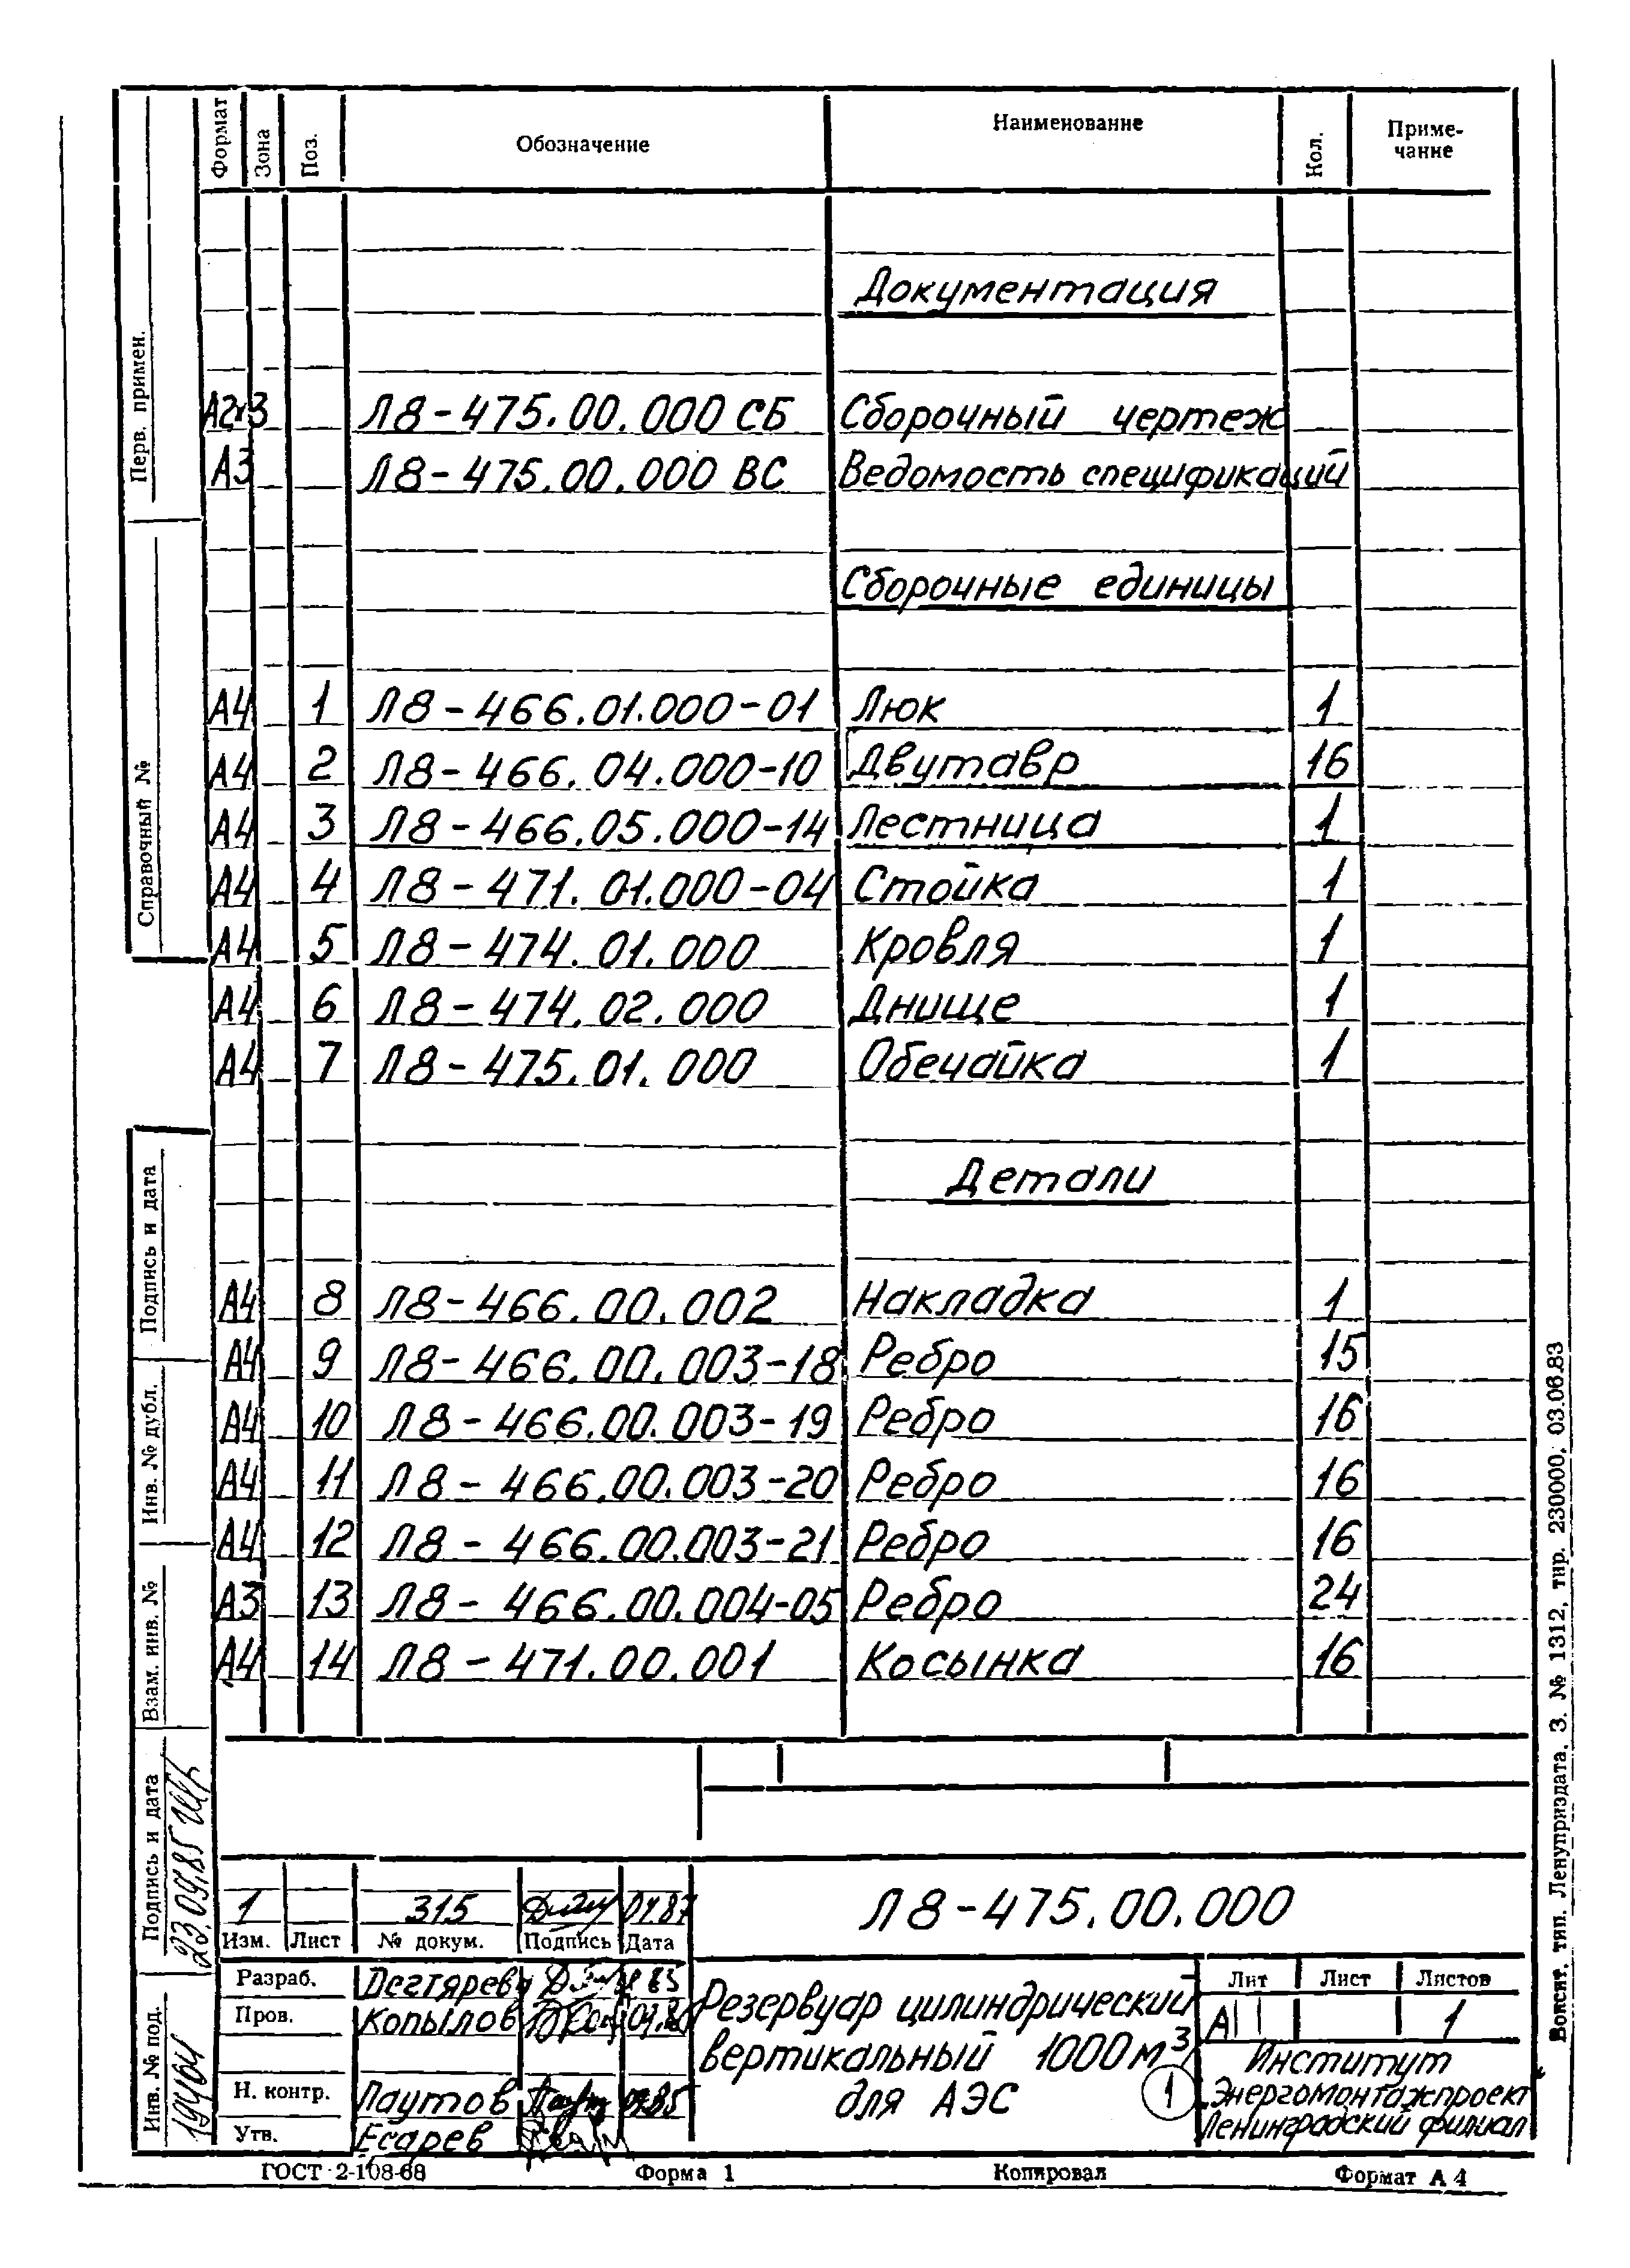 Формат Зона Поз. Обозначение Наименование Кол. Приме-
чание
Документация
А2х3 Л8-475.00.000 СБ Сборочный чертеж
А3 Л8-475.00.000 ВС Ведомость спецификаций
Сборочные единицы
А4 1 Л8-466.01.000-01 Люк 1
А4 2 Л8-466.04.000-10 Двутавр 16
А4 3 Л8-466.05.000-14 Лестница 1
А4 4 Л8-471.01.000-04 Стойка 1
А4 5 Л8-474.01.000 Кровля 1
А4 6 Л8-474.02.000 Днище 1
А4 7 Л8-475.01.000 Обечайка 1
Детали
А4 8 Л8-466.00.002 Накладка 1
А4 9 Л8-466.00.003-18 Ребро 15
А4 10 Л8-466.00.003-19 Ребро 16
А4 11 Л8-466.00.003-20 Ребро 16
А4 12 Л8-466.00.003-21 Ребро 16
А3 13 Л8-466.00.004-05 Ребро 24
А4 14 Л8-471.00.001 Косынка 16
Перв. примен.
Справочный №
Подпись и дата
Инв. № дубл.
Взам. инв. №
Подпись и дата
23.09.85
Инв. № под.
1 315 04.87
Изм. Лист № докум. Подпись Дата
Л8-475.00.000
Разраб. Дегтярева
Пров. Копылов
Н. контр. Лаутов
Утв. Есарев
Резервуар цилиндрический
вертикальный 1000 м³
для АЭС
1
Лит Лист Листов
А 1
Институт
Энергомонтажпроект
Ленинградский филиал
ГОСТ 2-108-68 Форма 1 Копировал Формат А4
Вокснт. тип. Ленуприздата. З. № 1312, тир. 230000, 03.06.83